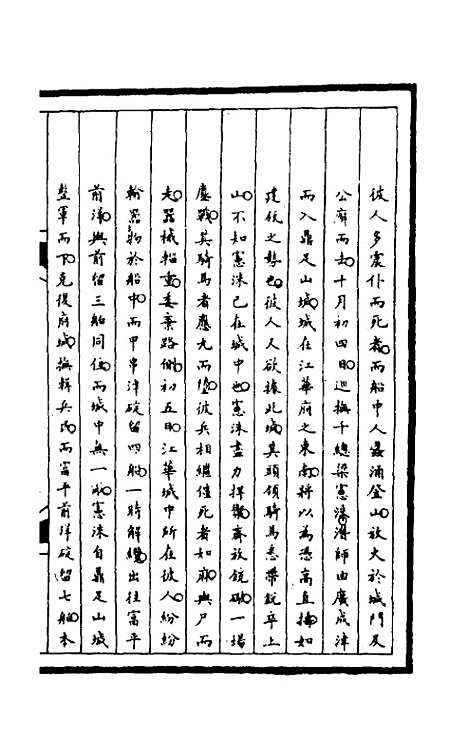 彼人多處仆而死者而船中人蟻湧登山放火於城門及
公廨而去十月初四日巡撫千總梁憲洙潛師由廣成津
而入鼎足山城城在江華府之東南將以為憑高直擣如
建瓴之勢也彼人又欲據此城其頭領騎馬悉帶銃卒上
山不知憲洙已在城中也憲洙盡力捍禦齊放銃砲一場
鏖戰其騎馬者應丸而墮彼兵相繼僵死者如麻輿尸而
走器械輜重委棄路側初五日江華城中所在彼人紛紛
輸器物於船中而甲串津碇留四船一時解纜出往富平
前洋與前留三船同住而城中無一賊憲洙自鼎足山城
整軍而下克復府城撫輯兵民而富平前洋碇留七船本